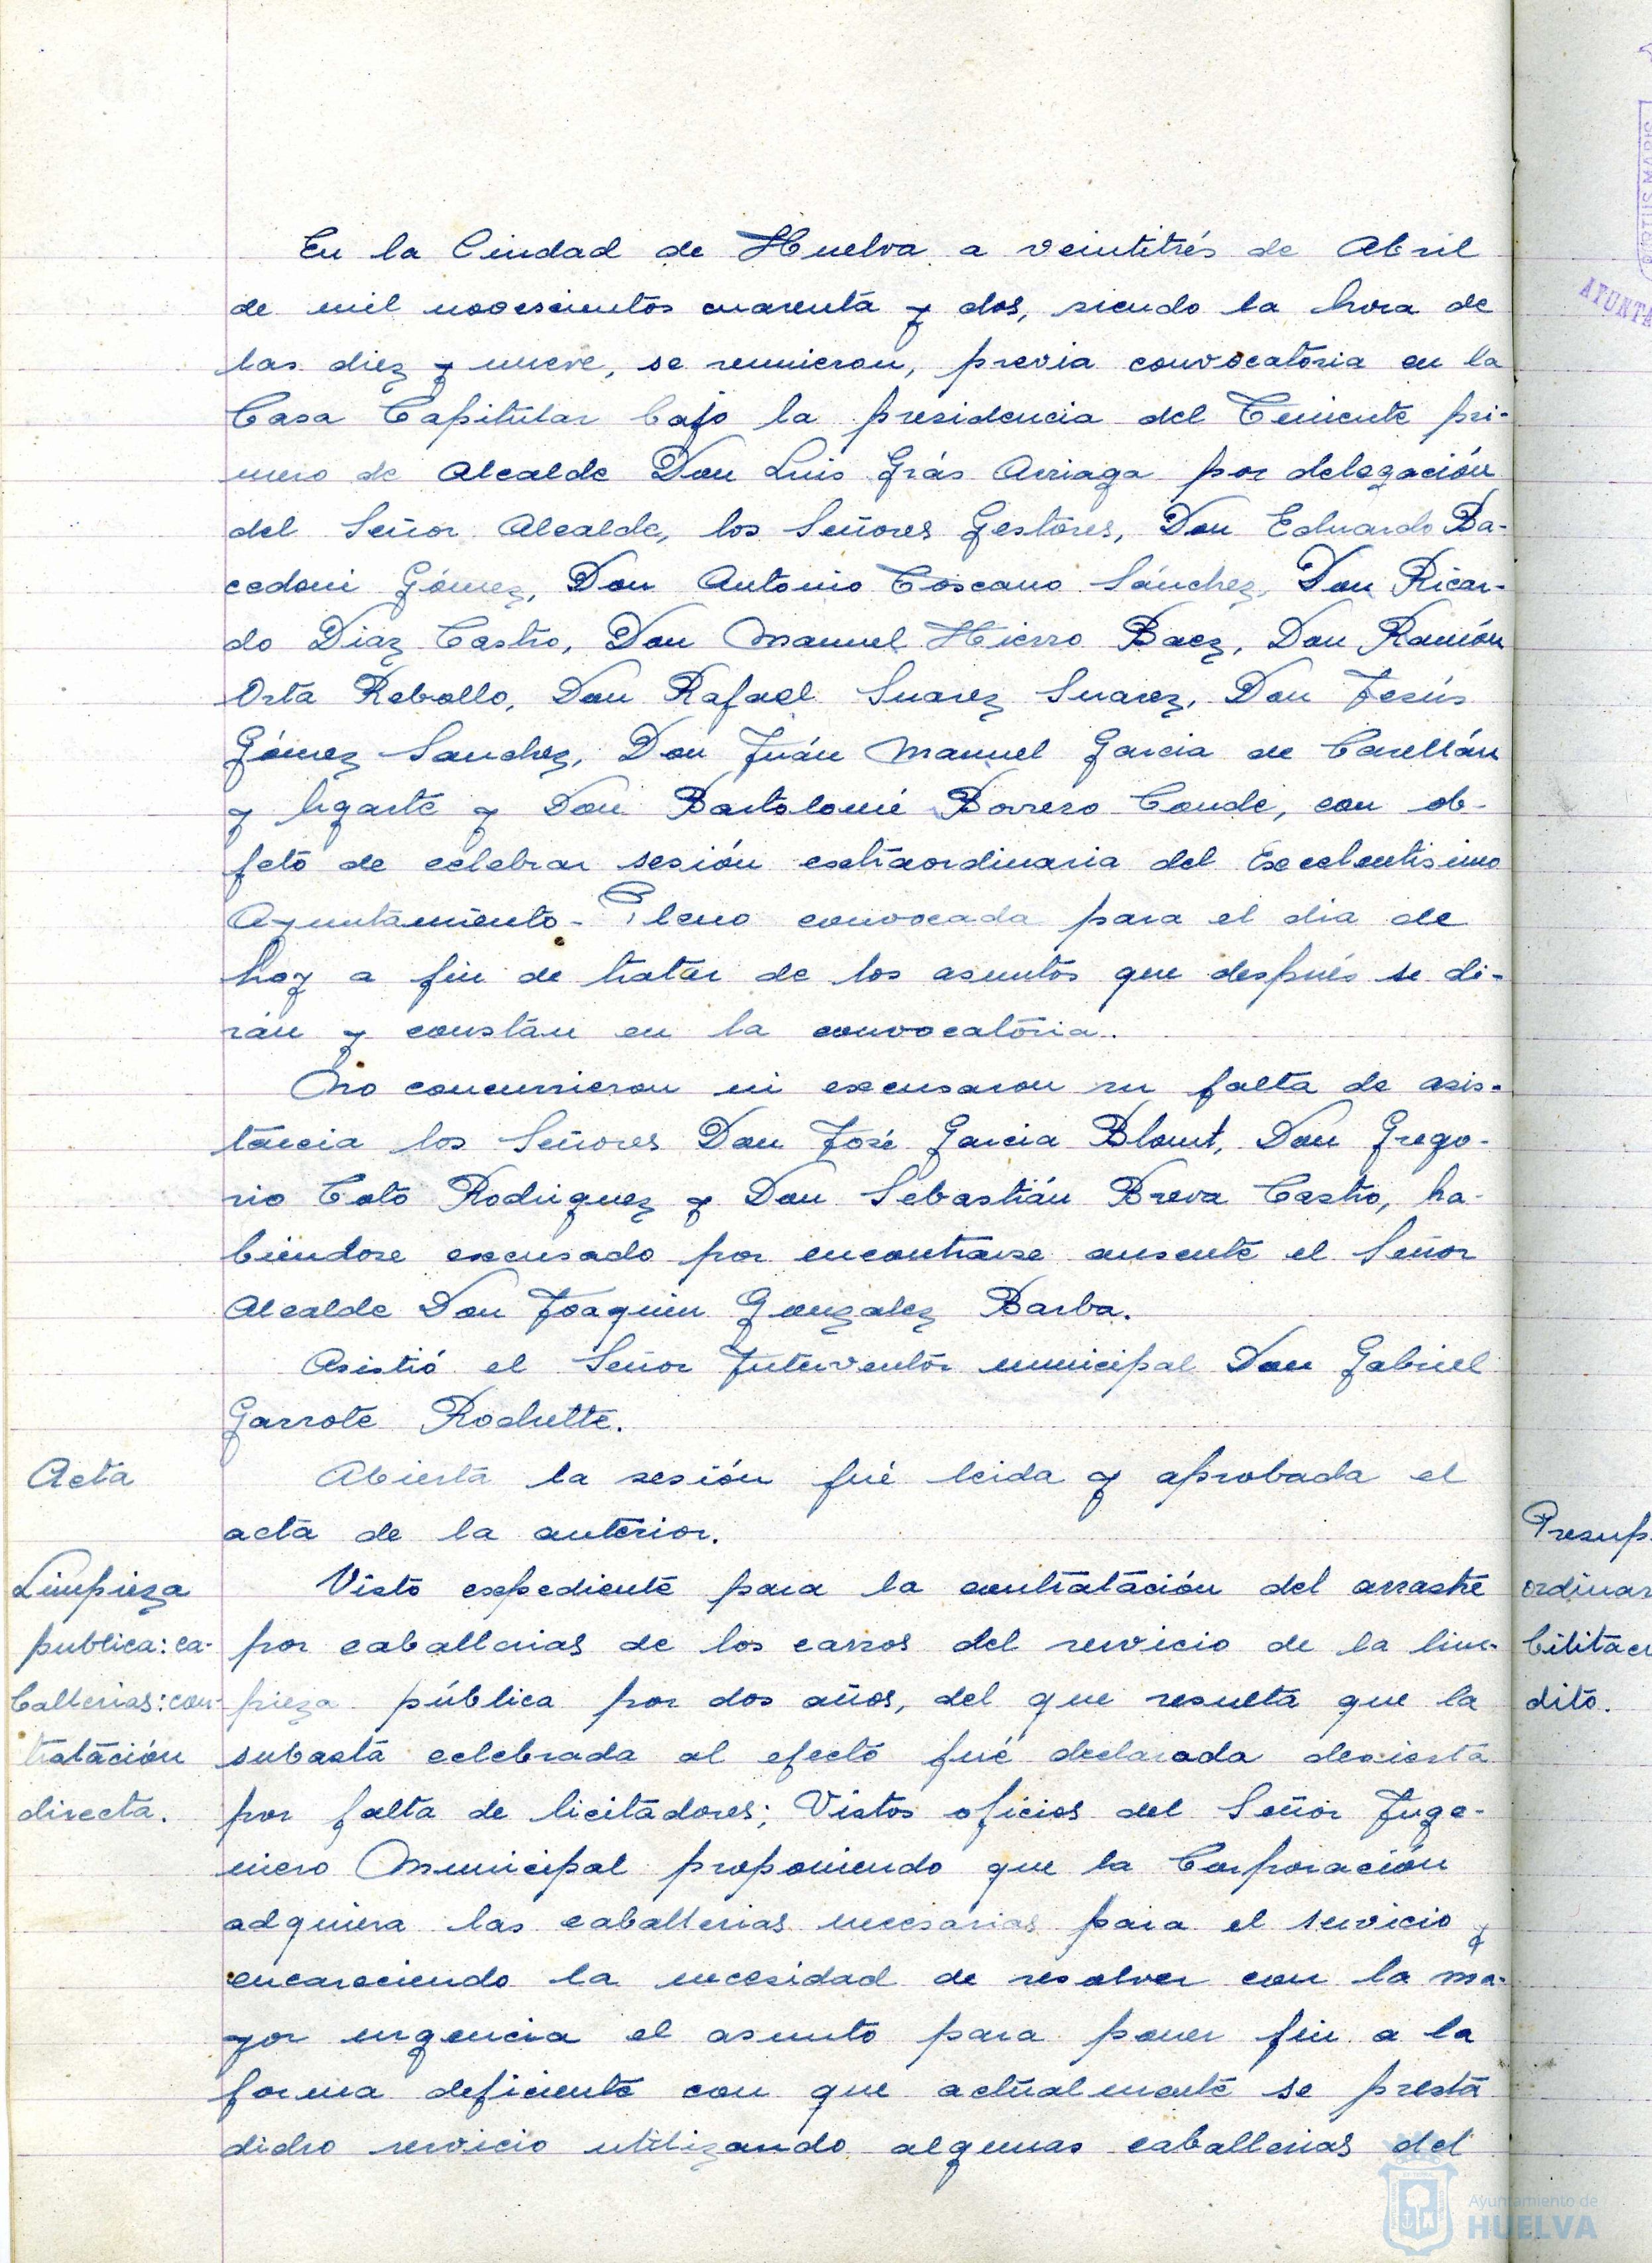 En la Ciudad de Huelva a veintitrés de Abril
de mil novecientos cuarenta y dos, siendo la hora de
las diez y nueve, se reunieron, previa convocatoria en la
Casa Capitular bajo la presidencia del Teniente pri-
mero de Alcalde Don Luis Grás Arriaga por delegación
del Señor Alcalde, los Señores Gestores, Don Eduardo Ba-
cedoni Gómez, Don Antonio Toscano Sánchez, Don Ricar-
do Diaz Castro, Don Manuel Hierro Baez, Don Ramón
Orta Rebollo, Don Rafael Suarez Suarez, Don Jesús
Gómez Sanchez, Don Juán Manuel Garcia de Carellán
y Ugarte y Don Bartolomé Borrero Conde, con ob-
jeto de celebrar sesión extraordinaria del Excelentisimo
Ayuntamiento-Pleno convocada para el dia de
hoy a fin de tratar de los asuntos que después se di-
rán y constán en la convocatoria.
No concurrieron ni excusaron su falta de asis-
tencia los Señores Don José Garcia Blount, Don Grego-
rio Coto Rodriguez y Don Sebastián Breva Castro, ha-
biendose excusado por encontrarse ausente el Señor
Alcalde Don Joaquin Gonzalez Barba.
Asistió el Señor Interventor municipal Don Gabriel
Garrote Rochette.
Acta Abierta la sesión fué leida y aprobada el
acta de la anterior.
Limpieza Visto expediente para la contratación del arrastre
publica: ca- por caballerias de los carros del servicio de la lim-
ballerias: con- pieza pública por dos años, del que resulta que la
tratación subasta celebrada al efecto fué declarada desierta
directa. por falta de licitadores; Vistos oficios del Señor Inge-
niero Municipal proponiendo que la Corporación
adquiera las caballerias necesarias para el servicio y
encareciendo la necesidad de resolver con la ma-
yor urgencia el asunto para poner fin a la
forma deficiente con que actualmente se presta
dicho servicio utilizando algunas caballerias del
Presup.
ordinar
bilitac
dito.
PORTUS MARIS
AYUNTA
Ayuntamiento de
HUELVA